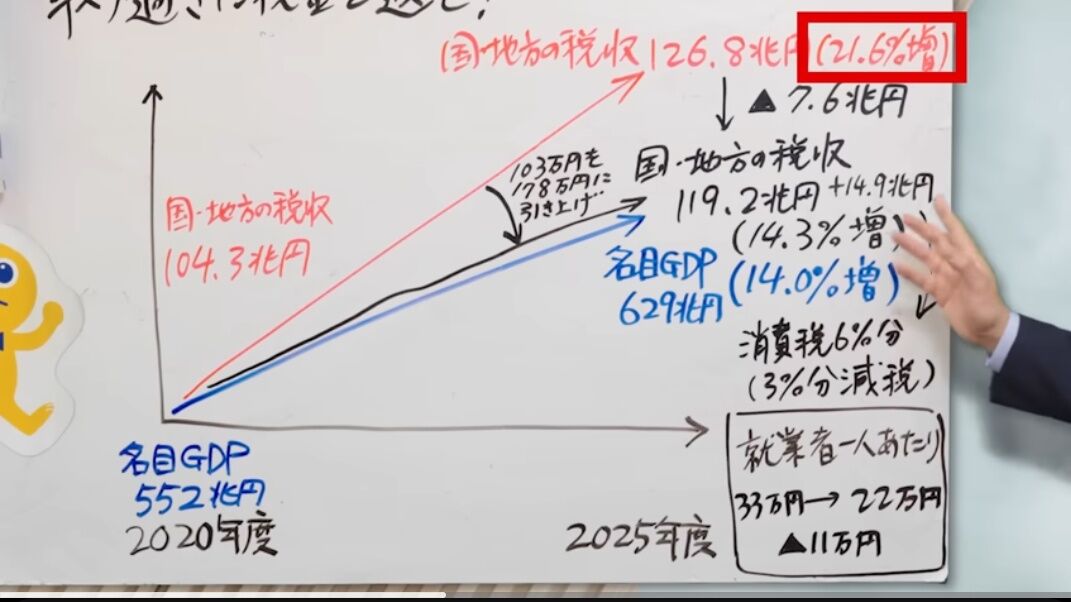 国・地方の税収 126.8兆円 (21.6%増)
▲7.6兆円
103万円を
178万円に
引き上げ
国・地方の税収
119.2兆円 +14.9兆円
(14.3%増)
国・地方の税収
104.3兆円
名目GDP
629兆円
(14.0%増)
消費税6%分
(3%分減税)
就業者一人あたり
33万円→22万円
▲11万円
名目GDP
552兆円
2020年度
2025年度